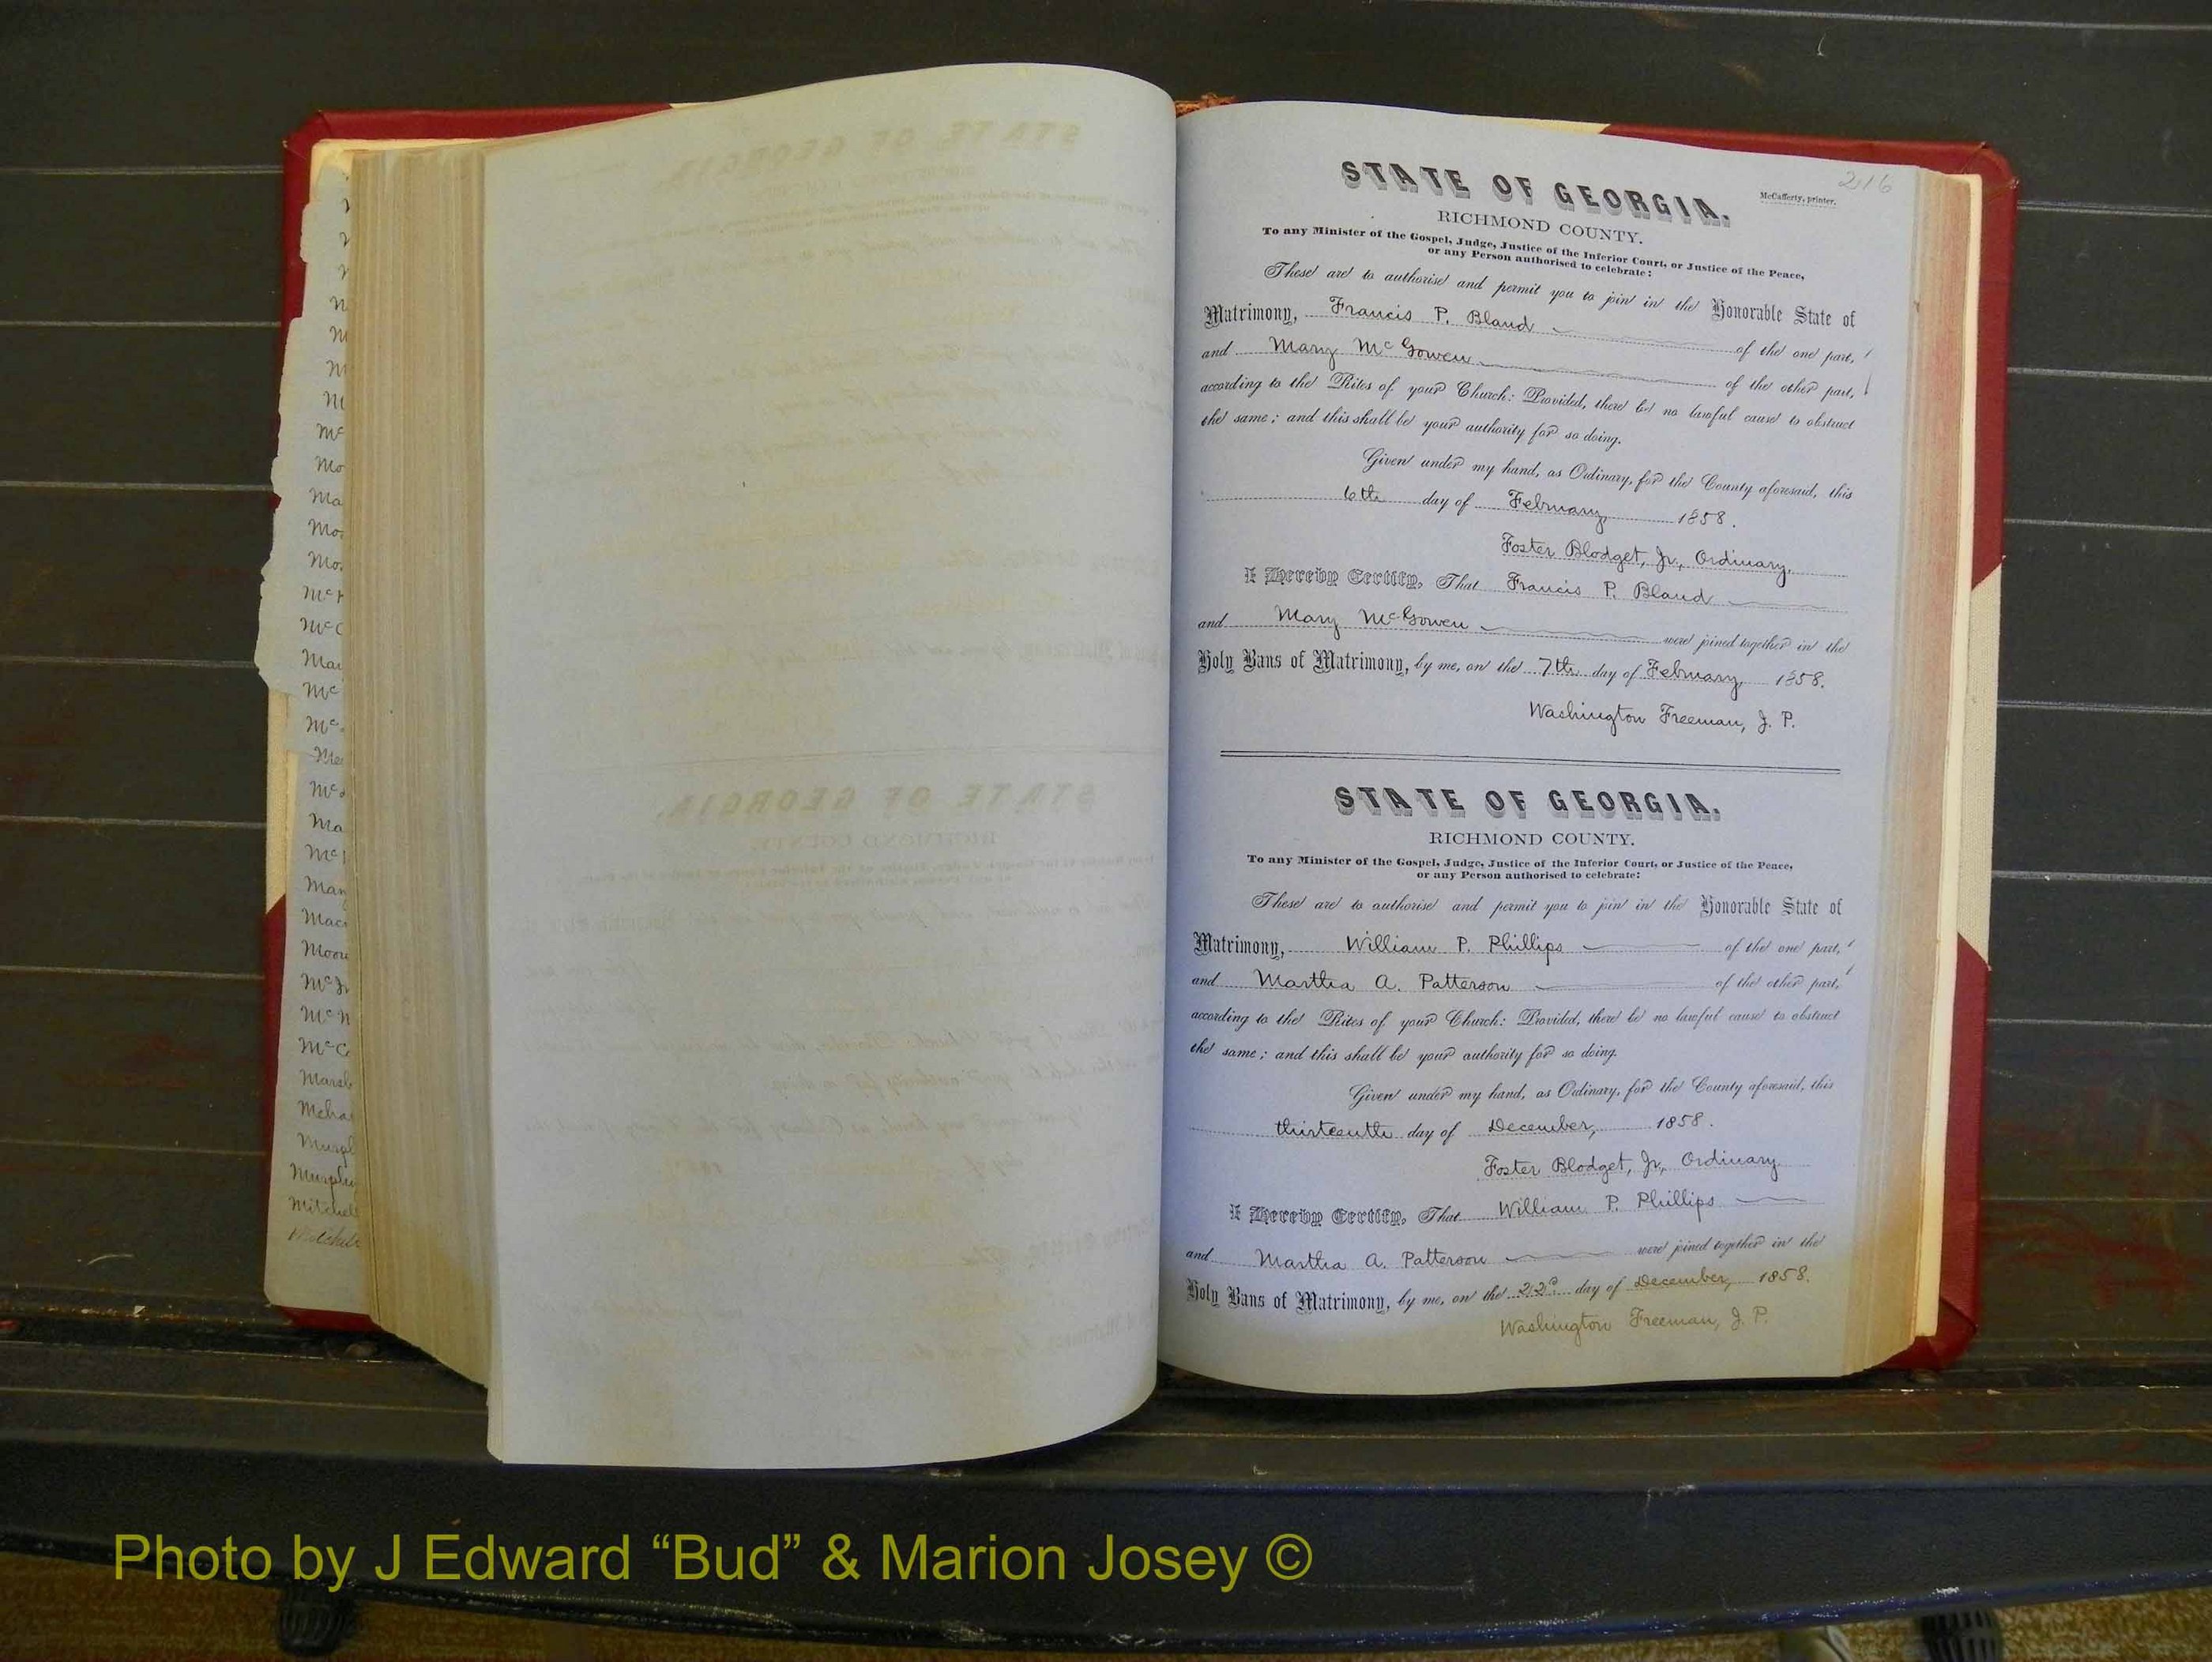 216
STATE OF GEORGIA.
McCafferty, printer.
RICHMOND COUNTY.
To any Minister of the Gospel, Judge, Justice of the Inferior Court, or Justice of the Peace,
or any Person authorised to celebrate:
These are to authorise and permit you to join in the Honorable State of
Matrimony, Francis P. Bland of the one part,
and Mary McGowen of the other part,
according to the Rites of your Church: Provided, there be no lawful cause to obstruct
the same; and this shall be your authority for so doing.
Given under my hand, as Ordinary, for the County aforesaid, this
6th day of February, 1858.
Foster Blodget, Jr., Ordinary.
I Hereby Certify, That Francis P. Bland
and Mary McGowen were joined together in the
Holy Bans of Matrimony, by me, on the 7th day of February, 1858.
Washington Freeman, J. P.
STATE OF GEORGIA.
RICHMOND COUNTY.
To any Minister of the Gospel, Judge, Justice of the Inferior Court, or Justice of the Peace,
or any Person authorised to celebrate:
These are to authorise and permit you to join in the Honorable State of
Matrimony, William P. Phillips of the one part,
and Martha A. Patterson of the other part,
according to the Rites of your Church: Provided, there be no lawful cause to obstruct
the same; and this shall be your authority for so doing.
Given under my hand, as Ordinary, for the County aforesaid, this
thirteenth day of December, 1858.
Foster Blodget, Jr., Ordinary.
I Hereby Certify, That William P. Phillips
and Martha A. Patterson were joined together in the
Holy Bans of Matrimony, by me, on the 22d day of December, 1858.
Washington Freeman, J. P.
Photo by J Edward “Bud” & Marion Josey ©